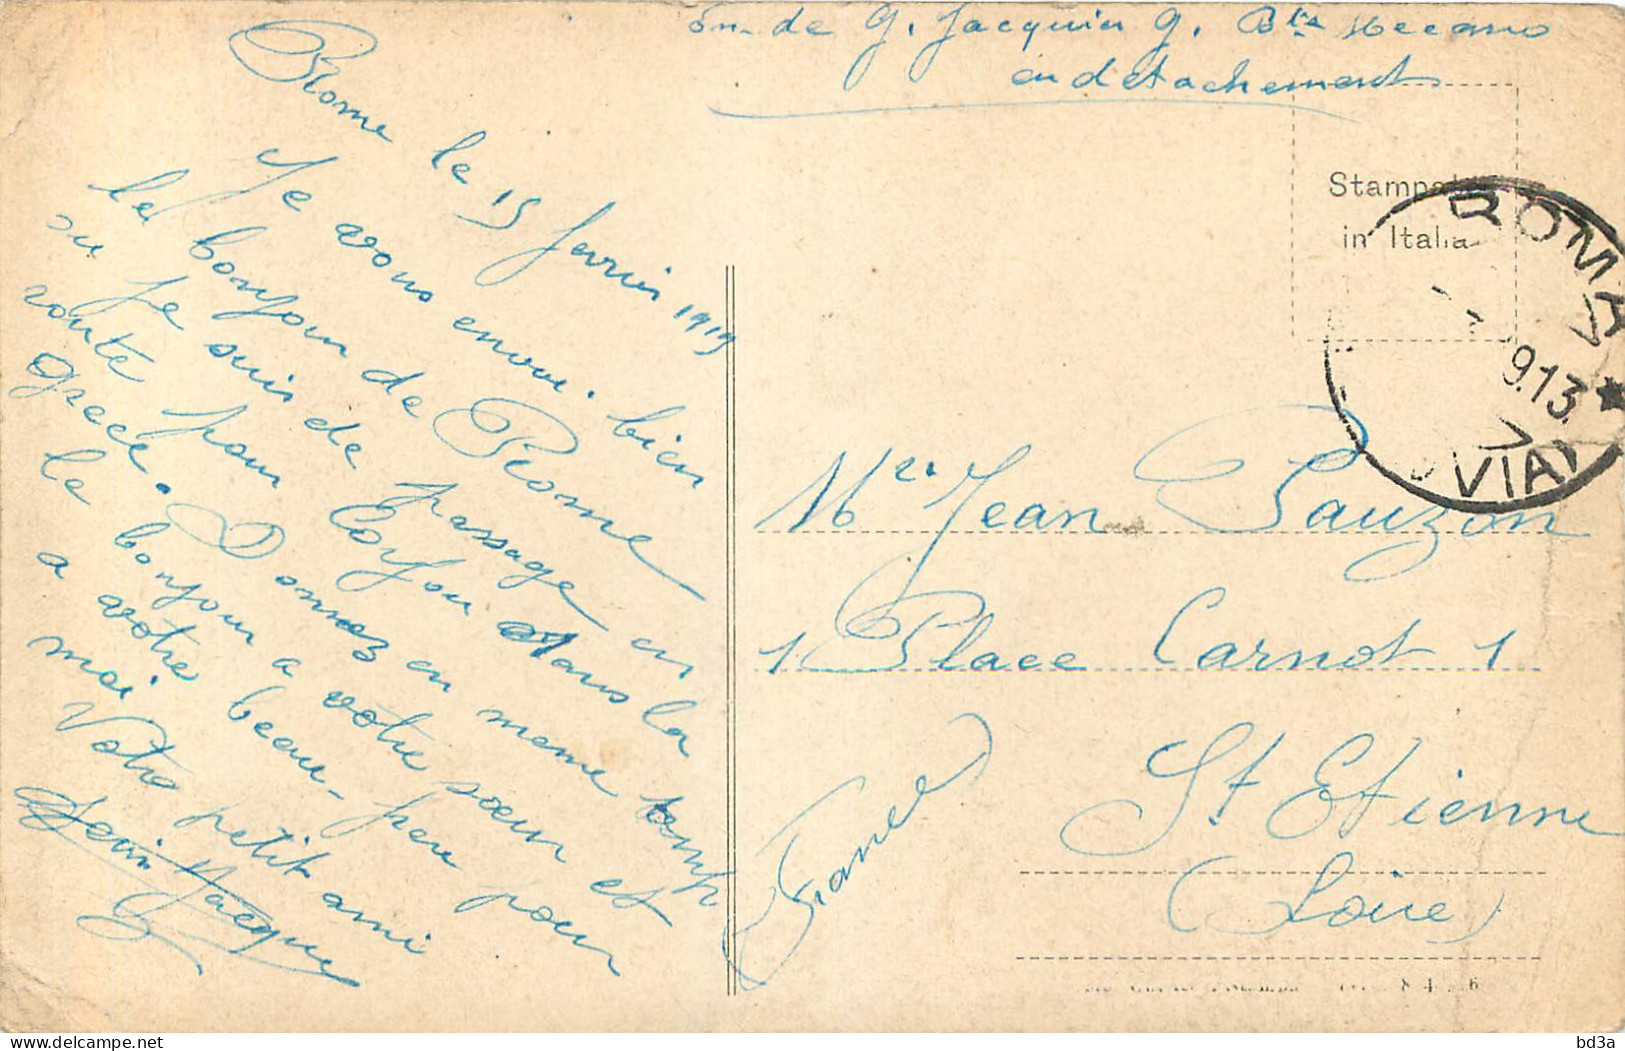 de G. Jacquin G.
en detachement
Rome le 15 fevrier 1919
Je vous envoi. bien
le bonjour de Rome
ou je suis de passage en
route pour Corfou dans la
Grece. Donnez en meme temps
le bonjour a votre sœur et
a votre beau-pere pour
moi
Votre petit ami
Jacque
Stampato
in Italia
ROMA
9.13
Mr Jean Pauzon
1 Place Carnot 1
St Etienne
(Loire)
(France)
bd3a